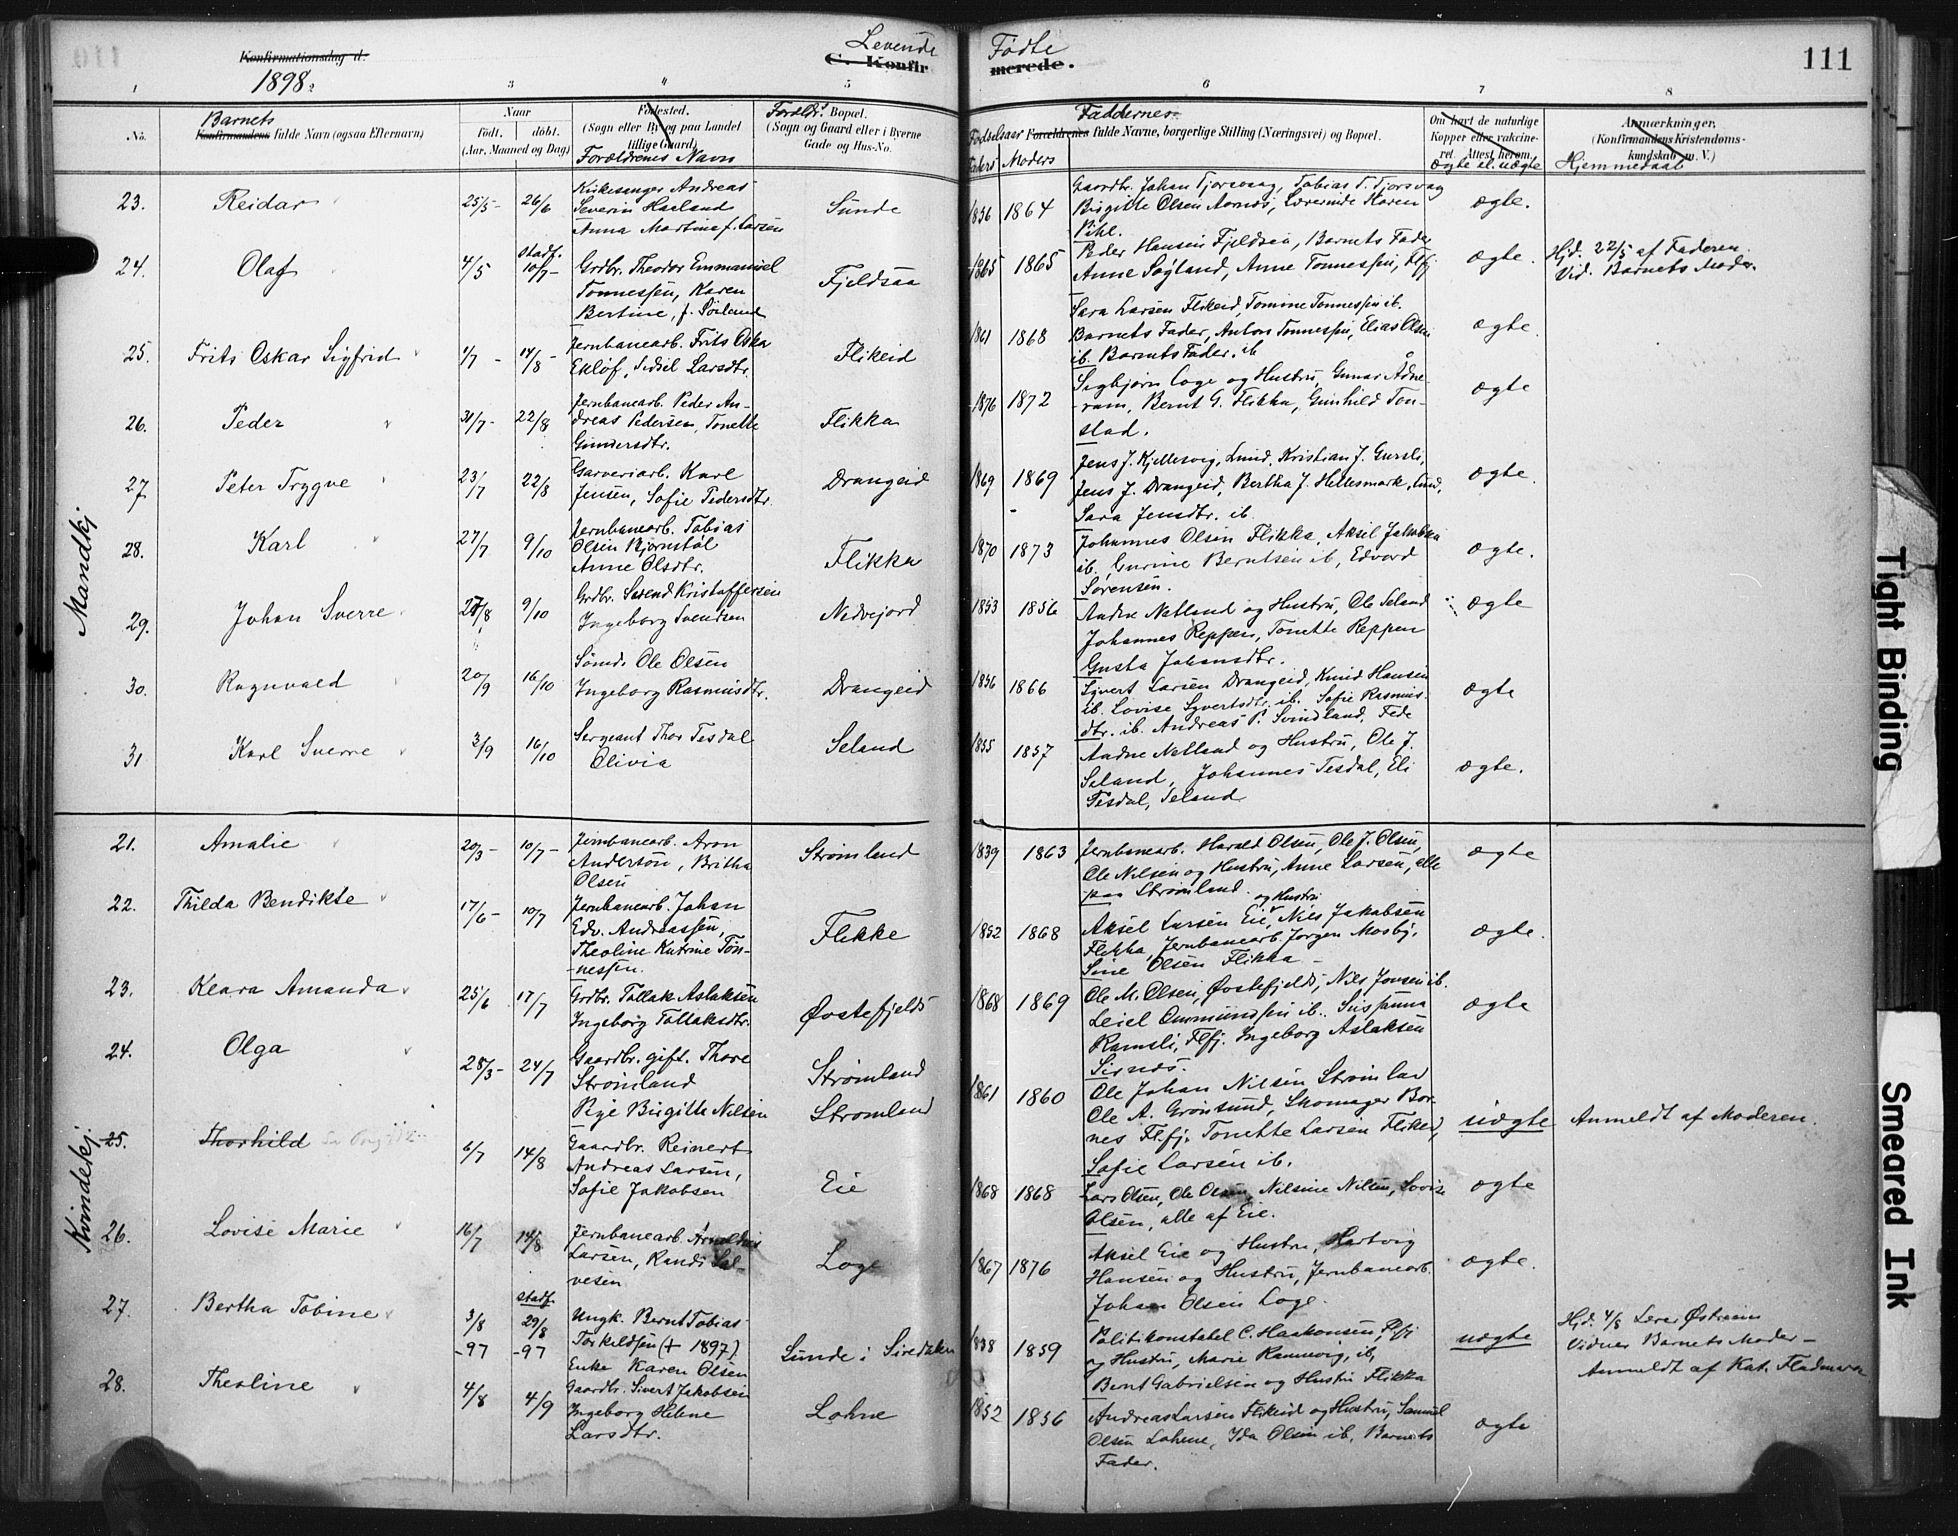 Konfirmationsdag d.
1898
Levende
C. Konfir
Fødte
merede.
111
1
3
4
5
6
7
8
No.
Barnets
Konfirmandens fulde Navn (ogsaa Efternavn)
Naar
født. døbt.
(Aar, Maaned og Dag)
Fødested.
(Sogn eller By og paa Landet
tillige Gaard)
Forældrenes Navn
Forældr. Bopæl.
(Sogn og Gaard eller i Byerne
Gade og Hus-No.
Fødselsaar
Faders Moders
Faddernes
Forældrenes fulde Navne, borgerlige Stilling (Næringsvei) og Bopæl.
Om havt de naturlige
Kopper eller vakcine-
ret. Attest herom.
Ægte el. uægte
Anmærkninger,
(Konfirmandens Kristendoms-
kundskab m. V.)
Hjemmedaab
Mandkj
23. Reidar 25/5 - 26/6
Kirkesanger Andreas
Severin Haaland
Anna Martine f. Larsen
Sunde
1836 1864
Gaardbr. Johan Tjorsvaag, Tobias T. Tjorsvag
Birgitte Olsen Aarnes, Lærerinde Karen
Pihl.
ægte.
24. Olaf 4/5 stadf. 10/7 -
Grdbr. Theodor Emmanuel
Tonnessen, Karen
Bertine, f. Sørland
Fjeldsaa
1865 1865
Peder Hansen Fjeldsaa, Barnets Fader
Anne Søyland, Anne Tonnessen, Flfj
ægte.
Hjd. 22/5 af Faderen
Vid. Barnets Moder.
25. Frits Oskar Sigfrid 1/7 - 14/8 -
Jernbanearb. Frits Oskar
Ekløf, Sidsel Larsdtr.
Flikeid
1861 1868
Sara Larsen Flikeid, Tomine Tonnessen ib.
Barnets Fader, Anton Tonnessen, Elias Olsen
ib. Barnets Fader. ib
ægte.
26. Peder 31/7 - 22/8
Jernbanearb. Peder An-
dreas Pedersen, Tonette
Gundersdtr.
Flikka
1876 1872
Sigbjørn Loge og Hustru, Gunar Ådne-
-ram, Bernt G. Flikka, Gunhild Ton-
stad.
ægte
27 Peter Trygve 23/7 22/8
Garveriarb. Karl
Jensen, Sofie Pedersdtr.
Drangeid
1869 1869
Jens J. Kjellesvig, Lund, Kristian J. Gursli,
Jens J. Drangeid, Bertha J. Hellesmark, Lund,
Sara Jensdtr. ib
ægte.
28. Karl 27/7 9/10
Jernbanearb. Tobias
Olsen Bjørnstøl
Anne Olsdtr.
Flikka
1870 1873
Johannes Olsen Flikka, Aksel Jakobsen
ib. Gurine Berntsen ib, Edvard
Sørensen.
ægte.
29. Johan Sverre 27/8 9/10
Grdbr. Svend Kristoffersen
Ingeborg Svendsen
Nedvejord
1853 1856
Andne Netland og Hustru, Ole Seland
Johannes Reppen, Tonette Reppen
Gusta Johansdtr.
ægte
30. Ragnvald 20/9 16/10
Sømd. Ole Olsen
Ingeborg Rasmusdtr.
Drangeid
1856 1866
Sivert Larsen Drangeid, Knud Hansen
ib. Lovise Syvertsdtr. ib. Sofie Rasmus-
dtr. ib. Andreas P. Svindland, Fede
ægte
31 Karl Sverre 3/9 16/10
Sergeant Thor Tesdal
Olivia
Seland
1855 1857
Andne Netland og Hustru, Ole J.
Seland, Johannes Tesdal, Eli
Tesdal, Seland
ægte.
Kvindekj.
21. Amalie 20/3 - 10/7 -
Jernbanearb. Aron
Anderson, Britha
Olsen
Strømland
1839 1863
Jernbanearb. Harald Olsen, Ole J. Olsen,
Ole Nilsen og Hustru, Anne Larsen, alle
paa Strømland.
ægte
22. Thilda Bendikte 17/6 - 10/7
Jernbanearb. Johan
Edv. Andreassen,
Theoline Katrine Tøn-
-nessen.
Flikke
1852 1868
og Hustru
Aksel Larsen Eie, Nils Jakobsen
Flikka, Jernbanearb. Jørgen Mosby,
Sine Olsen Flikka -
ægte.
23. Klara Amanda 25/6 17/7
Grdbr. Tallak Aslaksen
Ingeborg Tallaksdtr.
Øvstefjelds
1868 1869
Ole M. Olsen, Øvstefjelds, Nils Jonsen ib.
Leiel Aamundsen ib. Sussanna
Ramsli, Flfj. Ingeborg Aslaksen
Sirnes.
ægte
24. Olga 28/3 - 24/7
Gaardbr. gift. Thore
Strømland
Pige Birgitte Nilsen
Strømland
Strømland
1861 1860
Ole Johan Nilsen Strømland
Ole A. Grønsund, Skomager Bor-
nes Flfj. Tonette Larsen Flikeid,
Sofie Larsen ib.
uægte
Anmeldt af Moderen.
25. Thorhild 6/7 14/8
Gaardbr. Reinert
Andreas Larsen,
Sofie Jakobsen
Eie
1868 1868
Lars Olsen, Ole Olsen, Nilsine Nilsen, Lovise
Olsen, alle af Eie.
ægte
26. Lovise Marie 16/7 14/8
Jernbanearb. Arnoldus
Larsen, Randi Sal-
vesen
Loge
1867 1876
Aksel Eie og Hustru, Hartvig
Hansen og Hustru, Jernbanearb.
Johan Olsen Loge.
ægte.
27. Bertha Tobine 3/8 -97 stadf. 29/8 -97
Ungk. Bernt Tobias
Torkeldsen († 1897)
Enke Karen Olsen
Sunde i Siredalen
1838 1859
Politikonstabel C. Haakonsen, Flfj
og Hustru, Marie Rannevig, ib,
Bernt Gabrielsen og Hustru Flikka
uægte
Hjd. 4/8 Lærer Østreim
Vidner Barnets Moder -
Anmeldt af Kat. Fladmaraa
28. Theoline 4/8 4/9
Gaardbr. Sivert Jakobsen
Ingeborg Helene
Larsdtr.
Lohne
1852 1856
Andreas Larsen Flikeid og Hustru, Samuel
Olsen Lohne, Ida Olsen ib, Barnets
Fader.
ægte
Tight Binding
Smeared Ink